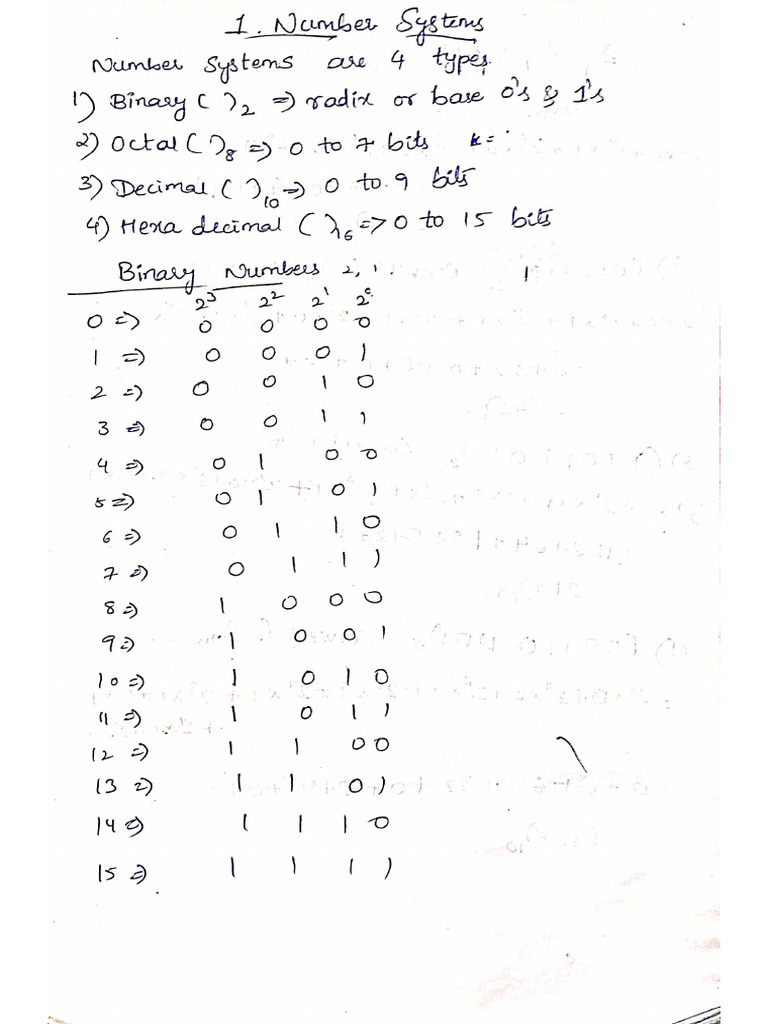 1. Number Systems
Number Systems are 4 types.
1) Binary ( )₂ => radix or base 0's & 1's
2) Octal ( )₈ => 0 to 7 bits k=
3) Decimal. ( )₁₀ => 0 to 9 bits
4) Hexa decimal ( )₁₆ => 0 to 15 bits
Binary Numbers 2, 1.
2³ 2² 2¹ 2⁰
0 => 0 0 0 0
1 => 0 0 0 1
2 => 0 0 1 0
3 => 0 0 1 1
4 => 0 1 0 0
5 => 0 1 0 1
6 => 0 1 1 0
7 => 0 1 1 1
8 => 1 0 0 0
9 => 1 0 0 1
10 => 1 0 1 0
11 => 1 0 1 1
12 => 1 1 0 0
13 => 1 1 0 1
14 => 1 1 1 0
15 => 1 1 1 1